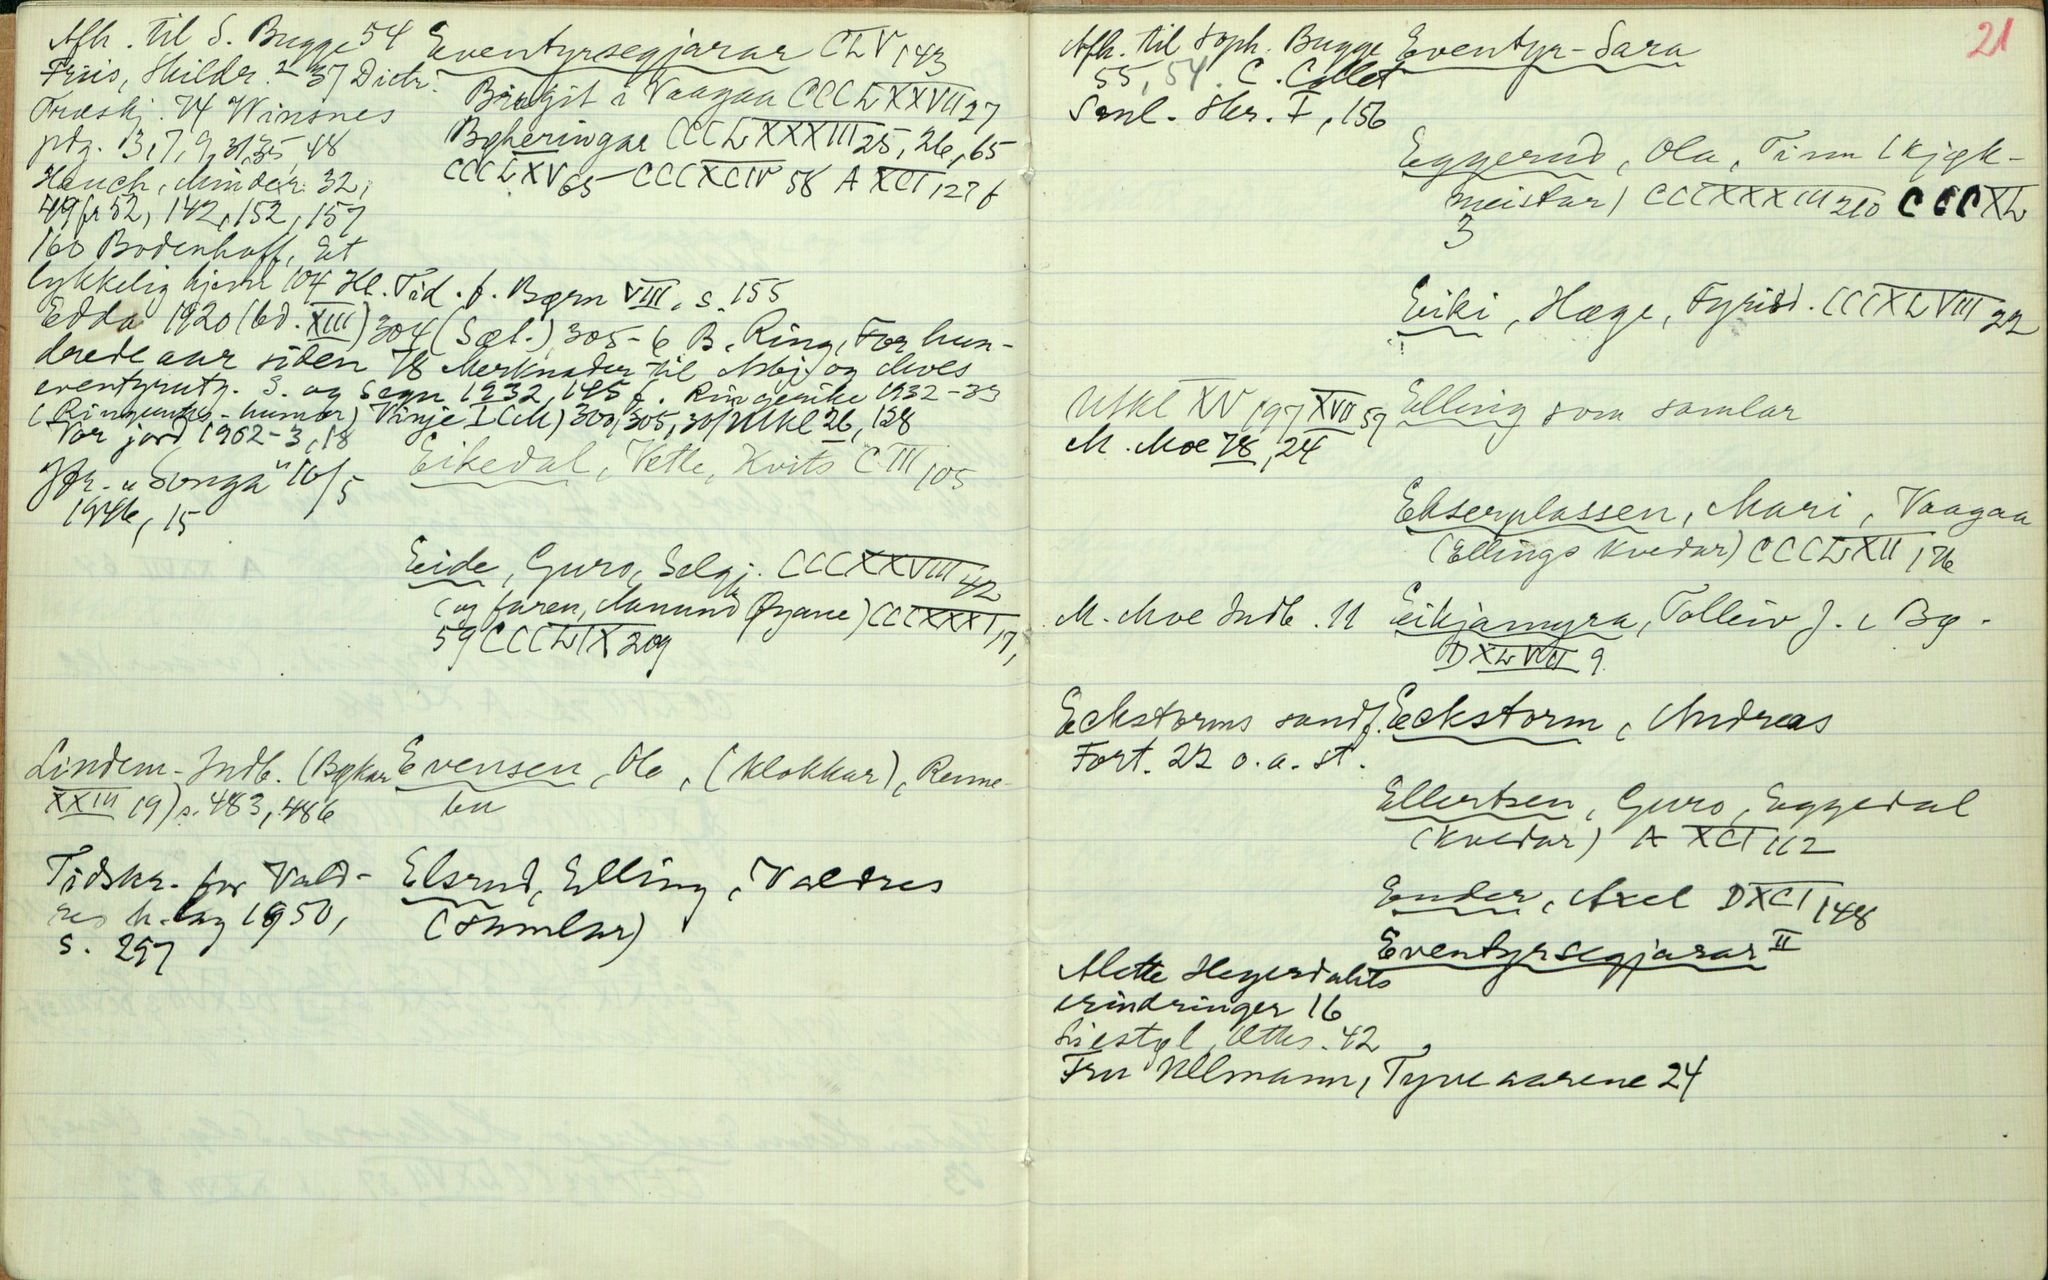 Afh. til S. Bugge 54
Eventyrsegjarar CLV 143
Friis, Skildr.² 37 Dietr.
Birgit i Vaagaa CCCLXXVII 27
Træskj. 74 Winsnes
Bøheringar CCCLXXXIII 25, 26, 65
CCCLXV 65 CCCXCIV 58 A XCI 127 f
pdg. 3, 7, 9, 31, 35, 48
Hauch, Minder 32,
49 fr 52, 142, 152, 157
160 Bodenhoff, Et
lykkelig hjem 104 Ill. Tid. f. Børn VIII, s. 155
Edda 1920 (bd. XIII) 304 (Sæl.) 305-6 B. Ring, For hun-
drede aar siden 78 Merknader til Asbj. og Moes
eventyrutg. 3. og Segn 1932, 145 f. Ringerike 1932-33
(Ringeriks-humor) Vinje I (M) 300, 305, 30 Mkl 26, 128
Vor jord 1962-3, 18
Eikedal, Vetle, Kvits CIII 105
Jfr. "Songa" 10/5
1946, 15
Eide, Guro, Selgj. CCCXXVIII 42
(og faren, Aanund Øygane) CCCXXXI 17,
59 CCCLIX 209
Lindem. Indb. (Bøkar
XXIII 19) s. 483, 486
Evensen, Ole, (klokkar), Renne-
bu
Tidskr. for Vald-
res h.lag 1950,
s. 297
Elsrud, Elling, Valdres
(samlar)
21
Afh. til Soph. Bugge
55, 54. C. Collet
Saml. Skr. I, 156
Eventyr-Sara
Eggerud, Ola, Tinn (kjøk-
meistar) CCCXXXIII 210 CCCXL
3
Eiki, Hæge, Fyrisd. CCCXLVIII 22
Mkl XV 197 XVII 59
M. Moe 78, 24
Elling som samlar
Ekserplassen, Mari, Vaagaa
(Ellings kvedar) CCCLXII 176
M. Moe Indb. 11
Eikjamyra, Tolleiv J. i Bø.
DXLVII 9
Eckstorms sandf.
Fort. 22 o.a. st.
Eckstorm, Andreas
Ellertsen, Guro, Eggedal
(kvedar) A XCI 112
Ender, Axel DXCI 148
Eventyrsegjarar II
Alette Heyerdahls
erindringer 16
Liestøl, Utks. 42
Fru Ullmann, Tyveaarene 24